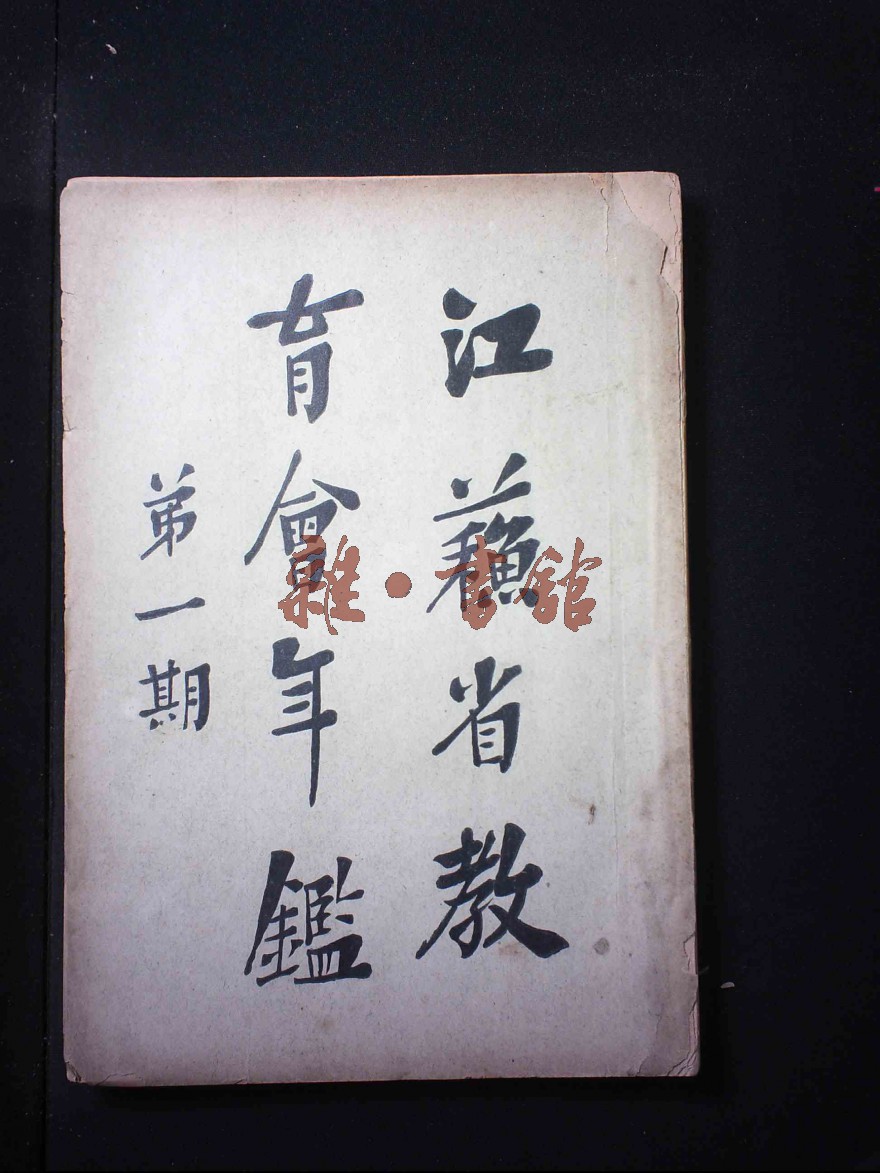 江蘇省教
育會年鑑
弟一期
雜·書館